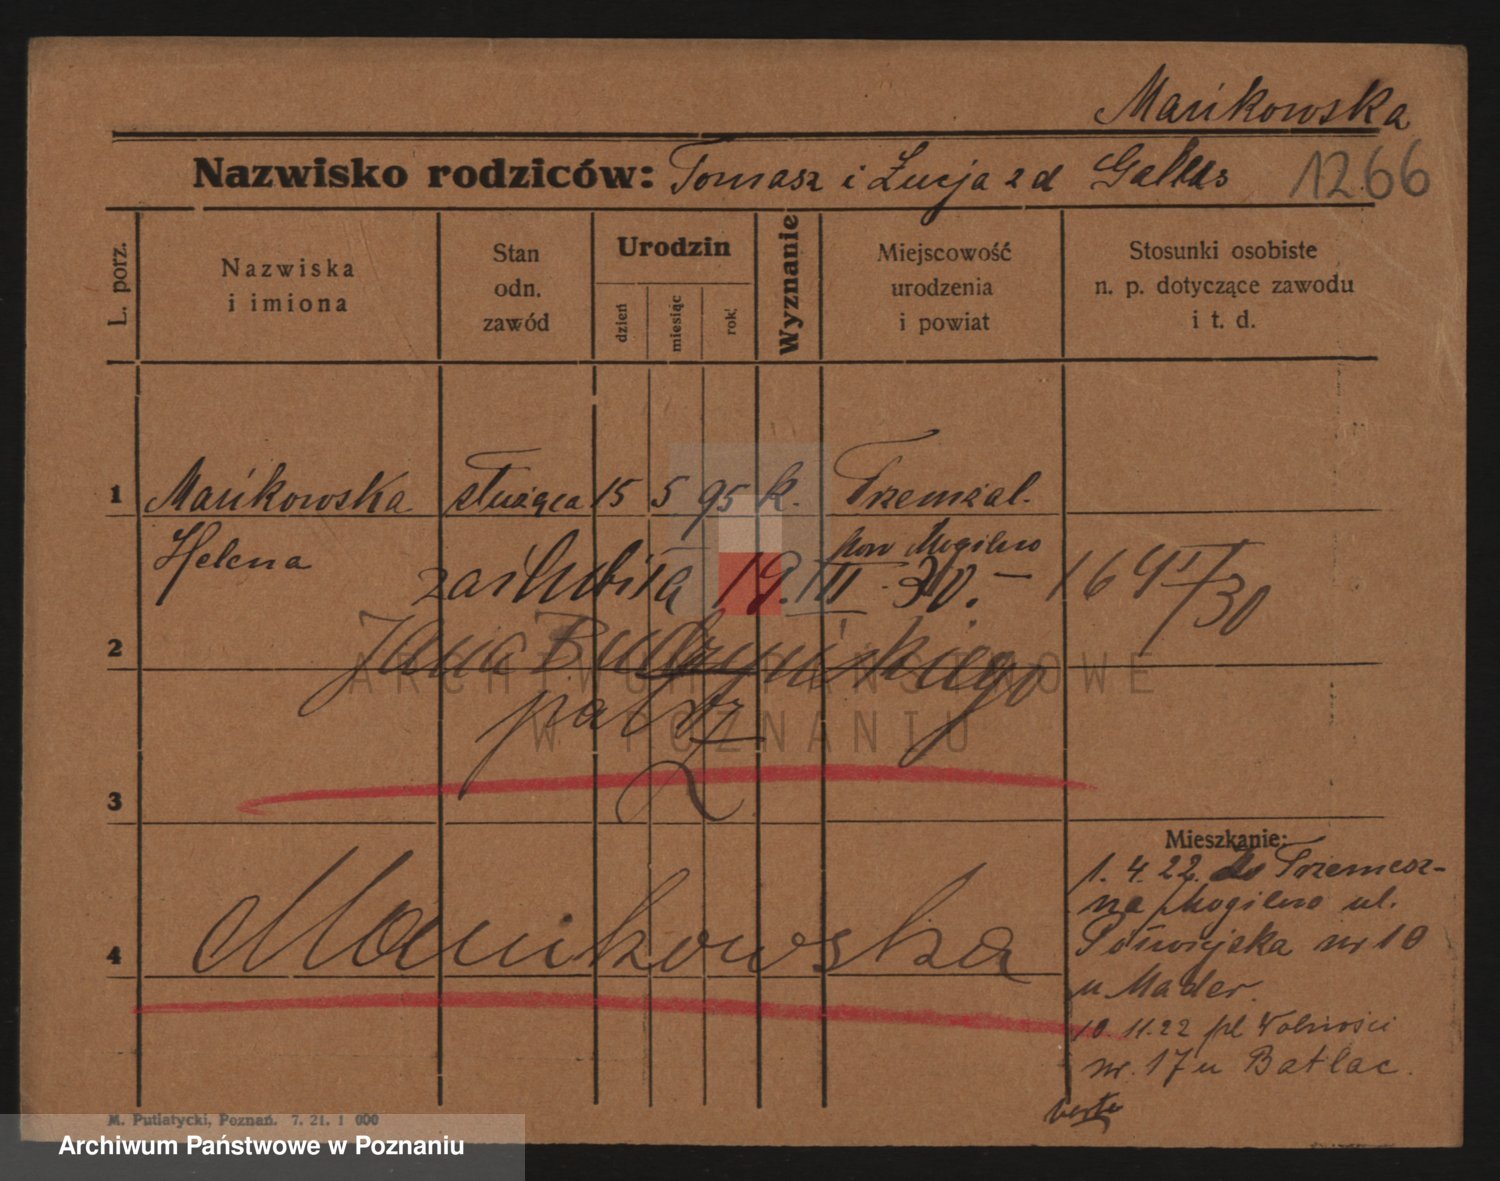 Mańkowska
Nazwisko rodziców: Tomasz i Łucja z d Gallus 1266
L. porz.
Nazwiska
i imiona
Stan
odn.
zawód
Urodzin
dzień
miesiąc
rok
Wyznanie
Miejscowość
urodzenia
i powiat
Stosunki osobiste
n. p. dotyczące zawodu
i t. d.
1 Mańkowska służąca 15 5 95 k. Trzemżal.
Helena pow Mogilno
zaślubiła 19. III 30. — 164 II/30
2 Jana Budzyńskiego
patrz
3
Mieszkanie:
1. 4. 22. do Trzemesz-
na Mogilno ul.
nr 10
4 Mańkowska
u Mader.
10. 11. 22 pl Wolności
nr. 17 u Batlac.
verte
M. Putiatycki, Poznań. 7. 21. 1 000
ARCHIWUM PAŃSTWOWE
W POZNANIU
Archiwum Państwowe w Poznaniu